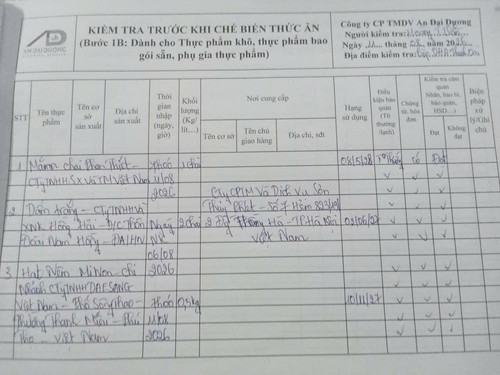 AN DAI DUONG
KIỂM TRA TRƯỚC KHI CHẾ BIẾN THỨC ĂN
(Bước 1B: Dành cho Thực phẩm khô, thực phẩm bao
gói sẵn, phụ gia thực phẩm)
Công ty CP TMDV An Đại Dương
Người kiểm tra:
Ngày 11 tháng 08 năm 2026
Địa điểm kiểm tra:
STT
Tên thực phẩm
Tên cơ sở sản xuất
Địa chỉ sản xuất
Thời gian nhập (ngày, giờ)
Khối lượng (Kg/lít....)
Nơi cung cấp
Tên cơ sở
Tên chủ giao hàng
Địa chỉ, sđt
Hạn sử dụng
Điều kiện bảo quản (Từ thường/lạnh)
Chứng từ, hóa đơn
Kiểm tra cảm quan
Nhãn, bao bì, bảo quản, HSD....)
Đạt
Không đạt
Biện pháp xử lý/Ghi chú
1 Mắm chai Phan Thiết - 7h00 1 chai 08/5/28 có Đạt
CTy TNHH SX và TM Việt Nam 11/08
2026 CTy CPTM Và Dịch Vụ Sơn
2 Dấm trắng - CTy TNHH và Phát - Số 7 Hẻm
XNK Hồng Hải - Đ/C Thôn Ngày 2 chai Hà - TP Hà Nội 03/06/27
Đoài Nam Hồng - ĐA/HN Việt Nam
06/08
3 Hạt Nêm Miwon - chi 2026
Nhánh CTy TNHH DAESANG
Việt Nam - Phố Sông Thao - 7h00 0,5kg 10/11/27
Phường Thanh Miếu - Phú 11/08
Thọ - Việt Nam 2026